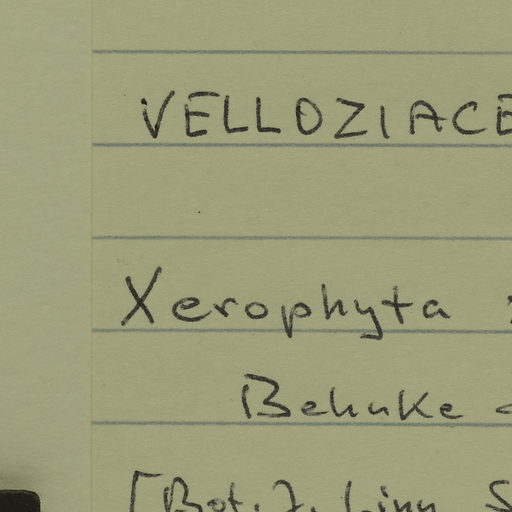 VELLOZIACE
Xerophyta
Behnke
[Bot. J. Linn. S